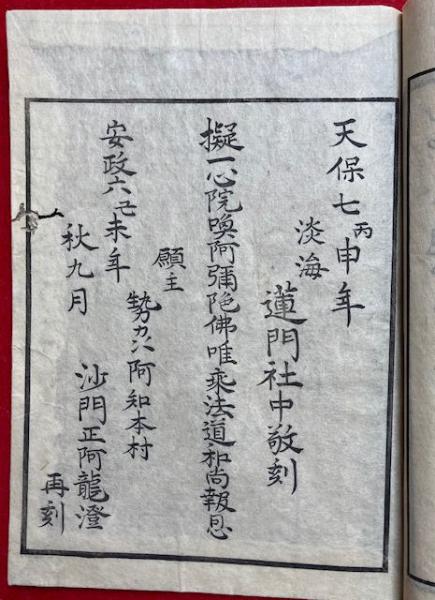 天保七丙申年
淡海
蓮門社中敬刻
擬一心院喚阿彌陀佛唯乘法道和尚報恩
願主
勢刕阿知本村
安政六己未年
秋九月
沙門正阿龍澄
再刻